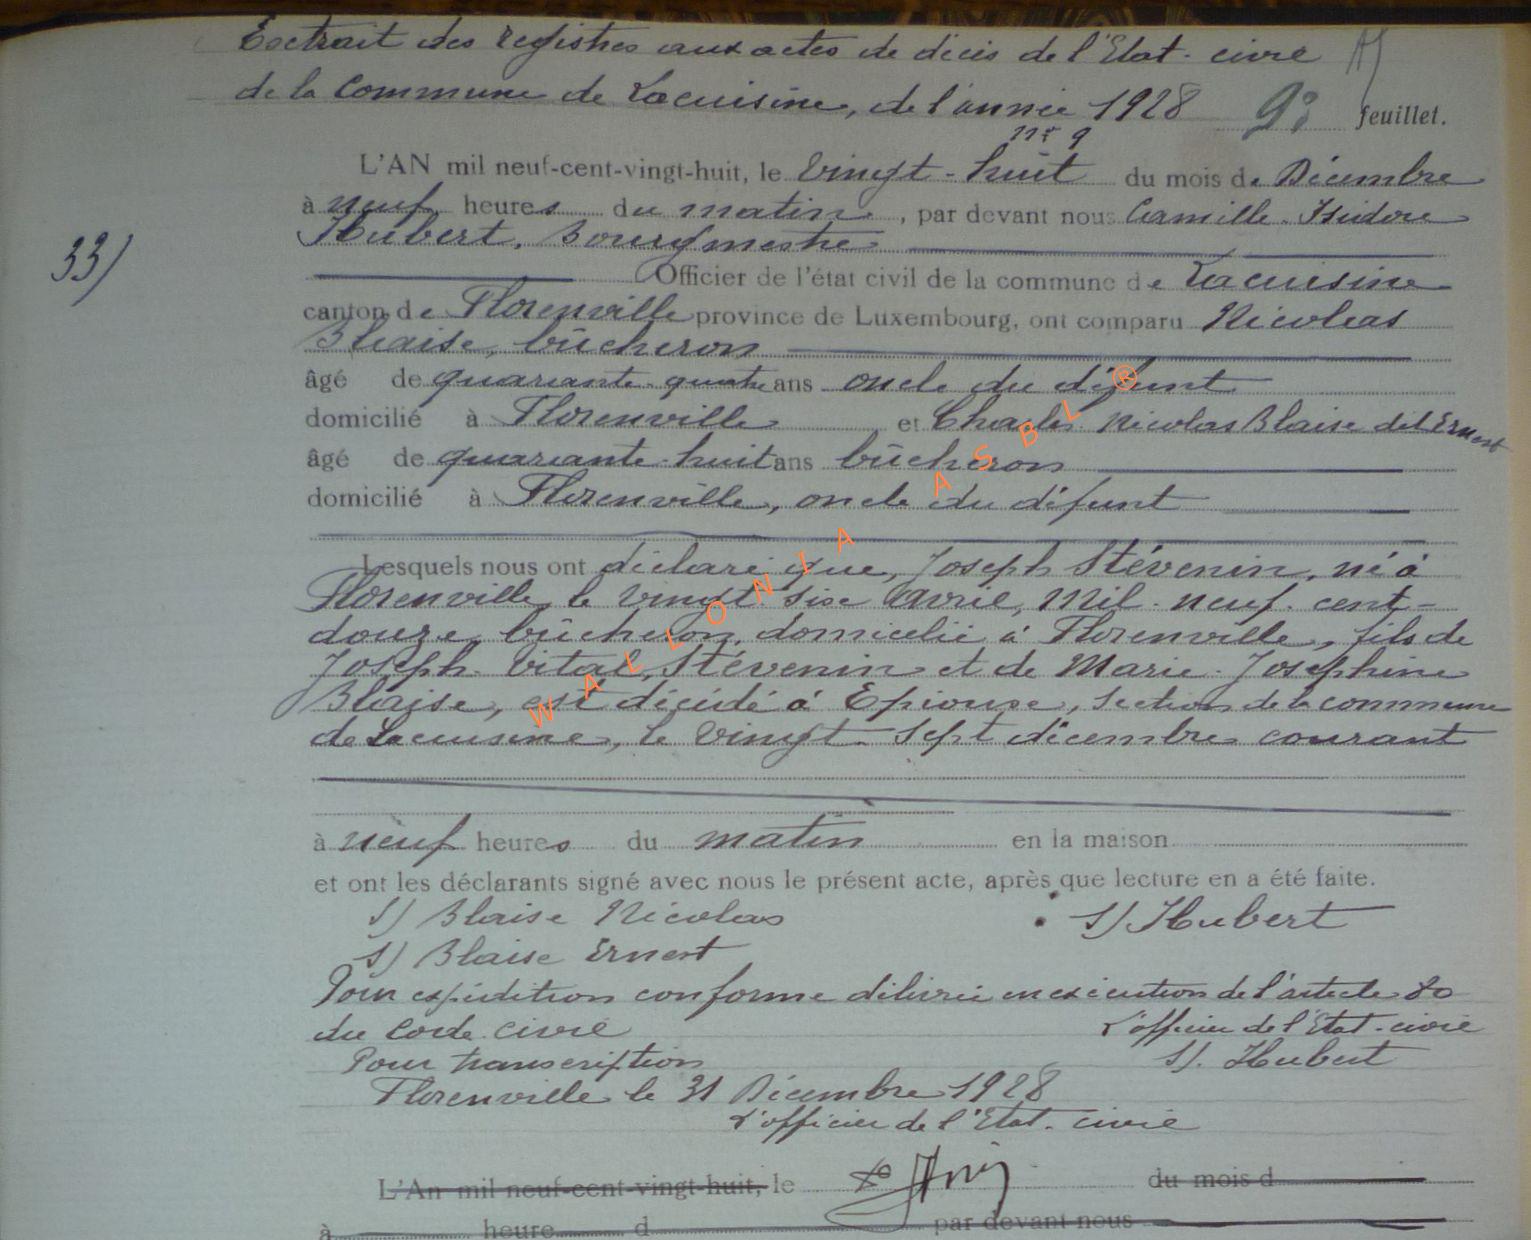 Extrait des registres aux actes de décès de l'Etat-civil
de la Commune de Lacuisine, de l'année 1928 9e feuillet.
n° 9
L'AN mil neuf-cent-vingt-huit, le Vingt-huit du mois de Décembre
à neuf heures du matin, par devant nous Camille Isidore
Hubert, Bourgmestre
33) Officier de l'état civil de la commune de Lacuisine
canton de Florenville province de Luxembourg, ont comparu Nicolas
Blaise, bûcheron
âgé de quarante-quatre ans oncle du défunt
domicilié à Florenville et Charles Nicolas Blaise dit Ernest
âgé de quarante-huit ans bûcheron
domicilié à Florenville, oncle du défunt
Lesquels nous ont déclaré que, Joseph Stévenin, né à
Florenville, le vingt six avril, Mil-neuf-cent-
douze, bûcheron, domicilié à Florenville, fils de
Joseph Vital Stévenin et de Marie-Joséphine
Blaise, est décédé à Epioux, section de la commune
de Lacuisine, le Vingt-Sept décembre courant
à neuf heures du matin en la maison
et ont les déclarants signé avec nous le présent acte, après que lecture en a été faite.
S) Blaise Nicolas S) Hubert
S) Blaise Ernest
Pour expédition conforme délivrée en exécution de l'article 80
du Code civil L'officier de l'Etat-civil
Pour transcription S). Hubert
Florenville le 31 Décembre 1928
L'officier de l'Etat-civil
L'An mil neuf-cent-vingt-huit, le du mois d
à heure d par devant nous
WALLONIA ASBL ®